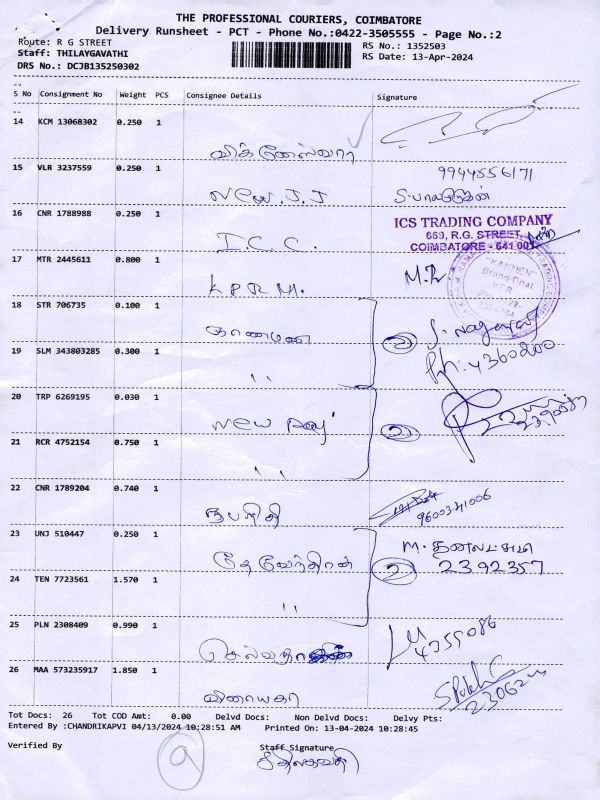 THE PROFESSIONAL COURIERS, COIMBATORE
Delivery Runsheet - PCT - Phone No.:0422-3505555 - Page No.:2
Route: R G STREET RS No.: 1352503
Staff: THILAYGAVATHI RS Date: 13-Apr-2024
DRS No.: DCJB135250302
S No Consignment No Weight PCS Consignee Details Signature
14 KCM 13068302 0.250 1
விக்னேஸ்வரா
15 VLR 3237559 0.250 1 9944556171
New. J. J
16 CNR 1788988 0.250 1
ICS TRADING COMPANY
669, R.G. STREET,
COIMBATORE - 641 001.
I. C. C.
17 MTR 2445611 0.800 1
K P R M.
18 STR 706735 0.100 1 2
"
19 SLM 343803285 0.300 1 Ph: 4360200
20 TRP 6269195 0.030 1
New 2
21 RCR 4752154 0.750 1
"
22 CNR 1789204 0.740 1
23 UNJ 510447 0.250 1 M. தனலட்சுமி
தேவேந்திரன் 2 2392357
24 TEN 7723561 1.570 1
"
25 PLN 2308409 0.990 1 4355086
26 MAA 573235917 1.850 1
விநாயகா
Tot Docs: 26 Tot COD Amt: 0.00 Delvd Docs: Non Delvd Docs: Delvy Pts:
Entered By :CHANDRIKAPVI 04/13/2024 10:28:51 AM Printed On: 13-04-2024 10:28:45
Verified By 9 Staff Signature